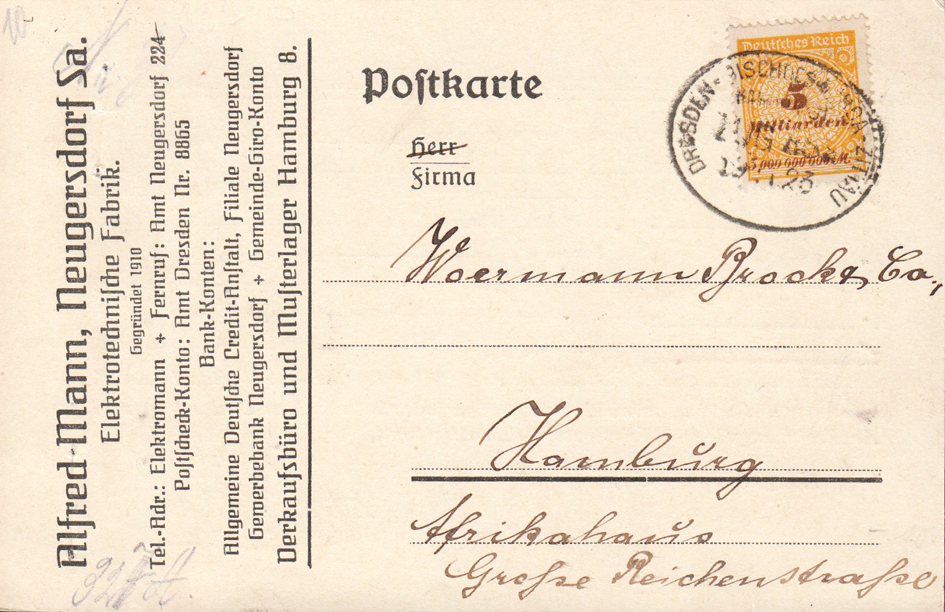 Alfred Mann, Neugersdorf Sa.
Elektrotechnische Fabrik.
Gegründet 1910
Tel.-Adr.: Elektromann + Fernruf: Amt Neugersdorf 224
Postscheck-Konto: Amt Dresden Nr. 8865
Bank-Konten:
Allgemeine Deutsche Credit-Anstalt, Filiale Neugersdorf
Gewerbebank Neugersdorf + Gemeinde-Giro-Konto
Verkaufsbüro und Musterlager Hamburg 8.
Postkarte
Herr
Firma
Deutsches Reich
5
Milliarden
DRESDEN - ZITTAU
23
Woermann Brock & Co.,
Hamburg
Afrikahaus
Große Reichenstraße
10